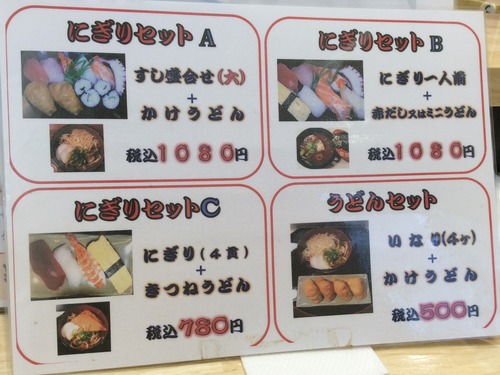 にぎりセット A
すし盛合せ(大)
+
かけうどん
税込1080円
にぎりセット B
にぎり一人前
+
赤だし又はミニうどん
税込1080円
にぎりセットC
にぎり(4貫)
+
きつねうどん
税込780円
うどんセット
いなり(4ヶ)
+
かけうどん
税込500円